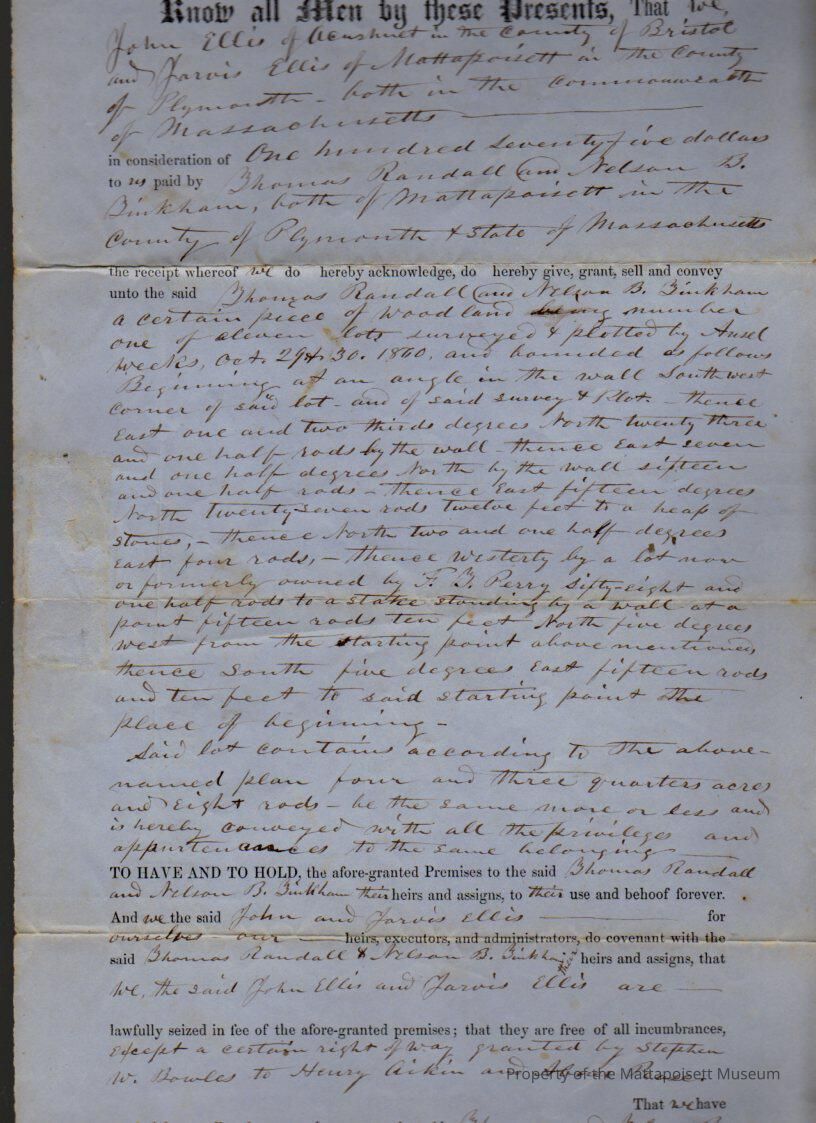 Know all Men by these Presents, That we,
John Ellis of Acushnet in the County of Bristol
and Jarvis Ellis of Mattapoisett in the County
of Plymouth - both in the Commonwealth
of Massachusetts
in consideration of One hundred seventy five dollars
to us paid by Thomas Randall and Nelson B.
Tinkham, both of Mattapoisett in the
County of Plymouth & State of Massachusetts
the receipt whereof we do hereby acknowledge, do hereby give, grant, sell and convey
unto the said Thomas Randall and Nelson B. Tinkham
a certain piece of woodland being number
one of eleven lots surveyed & plotted by Ansel
Weeks, Oct. 29 & 30. 1860, and bounded as follows
Beginning at an angle in the wall Southwest
corner of said lot - and of said survey & Plot. - thence
East one and two thirds degrees North twenty three
and one half rods by the wall - thence East seven
and one half degrees North by the wall sixteen
and one half rods - thence East fifteen degrees
North twenty-seven rods twelve feet to a heap of
stones, - thence North two and one half degrees
East four rods, - thence westerly by a lot now
or formerly owned by Perry Sixty-eight and
one half rods to a stake standing by a wall at a
point fifteen rods ten feet North five degrees
west from the starting point above mentioned,
thence South five degrees East fifteen rods
and ten feet to said starting point the
place of beginning -
Said lot contains according to the above-
named plan four and three quarters acres
and Eight rods - be the same more or less and
is hereby conveyed with all the privileges and
appurtenances to the same belonging
TO HAVE AND TO HOLD, the afore-granted Premises to the said Thomas Randall
and Nelson B. Tinkham their heirs and assigns, to their use and behoof forever.
And we the said John and Jarvis Ellis for
ourselves our heirs, executors, and administrators, do covenant with the
said Thomas Randall & Nelson B. Tinkham their heirs and assigns, that
we, the said John Ellis and Jarvis Ellis are
lawfully seized in fee of the afore-granted premises; that they are free of all incumbrances,
except a certain right of way granted by Stephen
W. Bowles to Henry Aikin and
Property of the Mattapoisett Museum
That we have